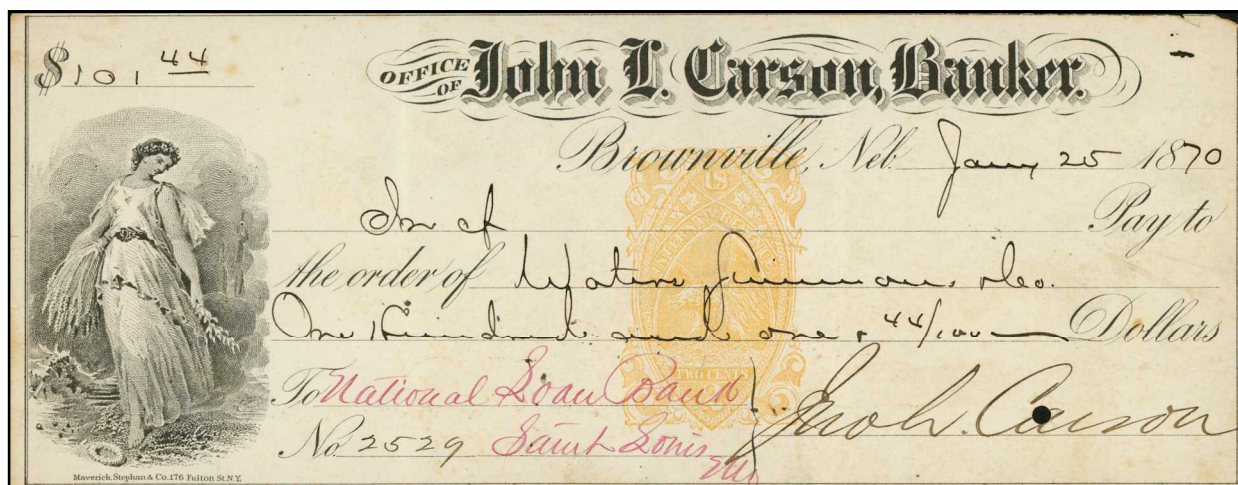 $101 44
OFFICE OF John L. Carson, Banker.
Brownville, Neb. Jany 25 1870
Pay to
the order of & Co.
One Hundred and one & 44/100 Dollars
To National Loan Bank
No. 2529 Saint Louis
Mo
Jno L. Carson
US
INTERNAL REVENUE
TWO CENTS
2
Maverick, Stephan & Co. 176 Fulton St. N.Y.